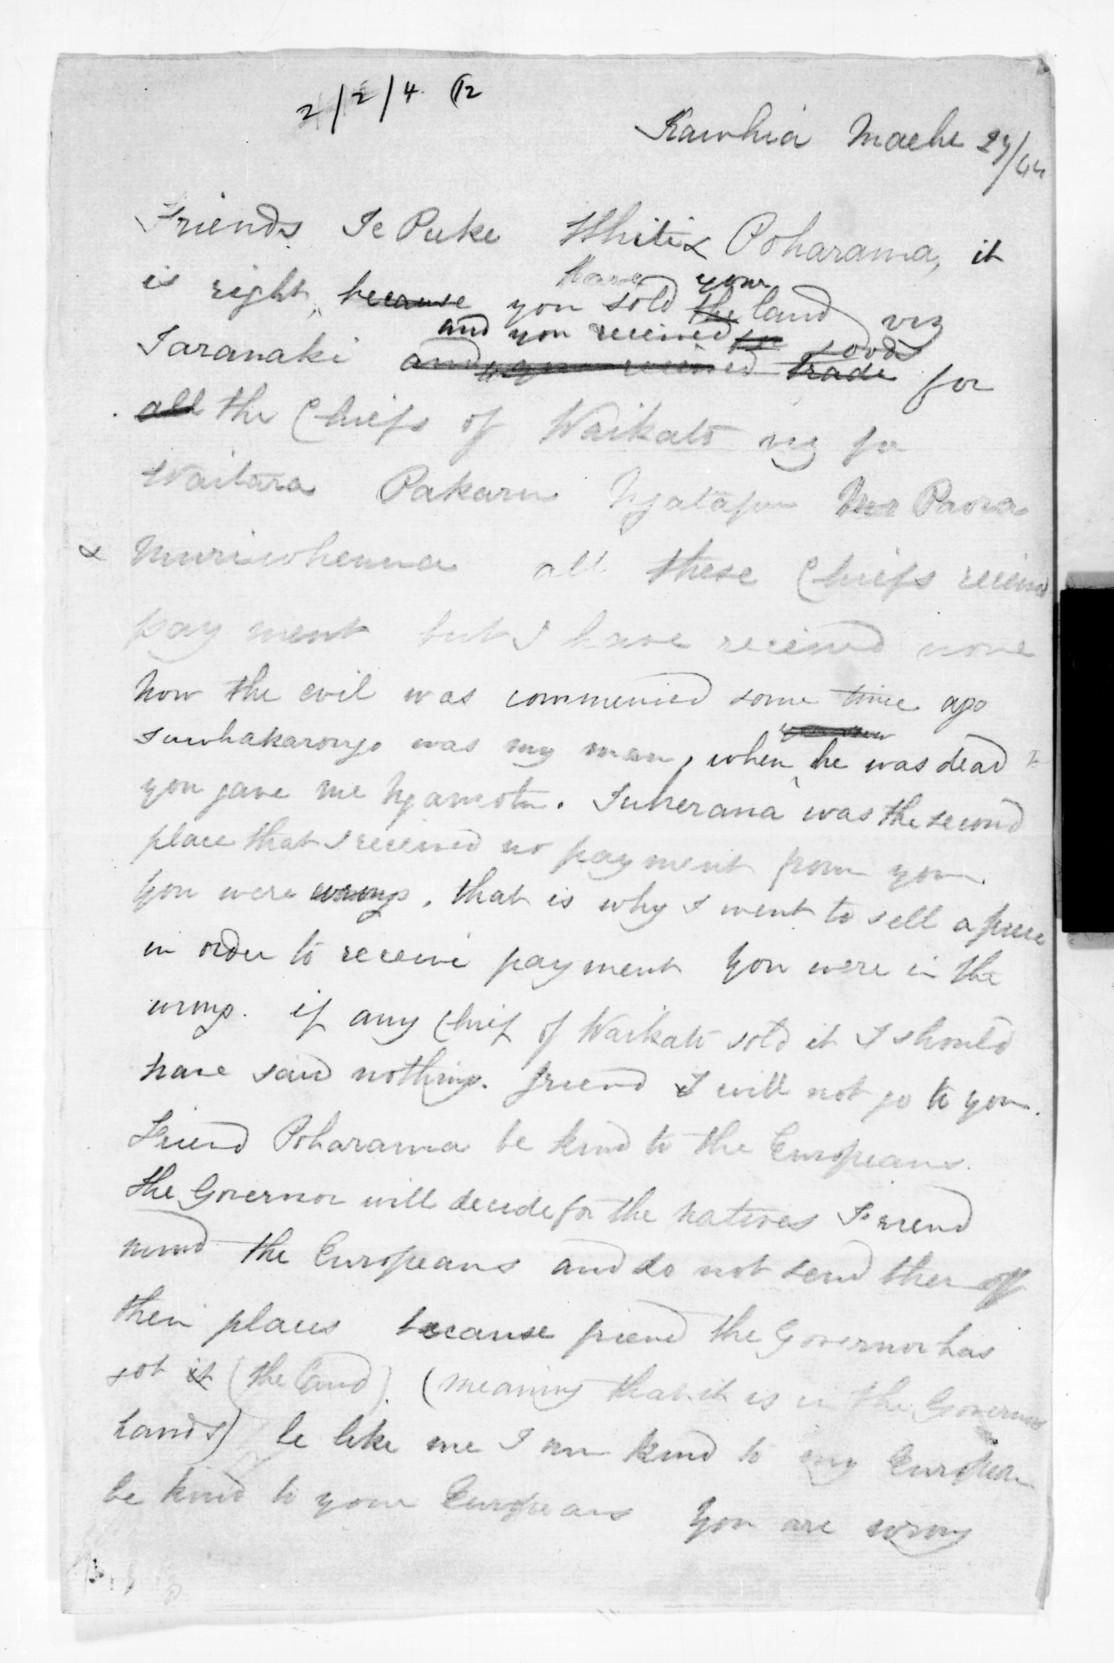 2/2/4 (12
Kawhia Maehe 27/44
Friends Te Puke Whiti & Poharama, it
is right, because you have sold the your land viz
Taranaki and you received the goods
and you received trade for
all the Chiefs of Waikato viz for
Waitara Pakaru Ngatapu Paora
& Muriwhenua all these Chiefs received
payment but I have received none
Now the evil was commenced some time ago
Tuwhakarongo was my man, when he was dead
you gave me Ngamotu. was the second
place that I received no payment from you.
You were wrong. that is why I went to sell a piece
in order to receive payment You were in the
wrong. if any Chief of Waikato sold it I should
have said nothing. friend I will not go to you.
Friend Poharama be kind to the Europeans.
the Governor will decide for the natives Friend
mind the Europeans and do not send them off
their places because friend the Governor has
got it (the land) (meaning that it is in the Governors
hands) be like me I am kind to my European
be kind to your Europeans You are wrong